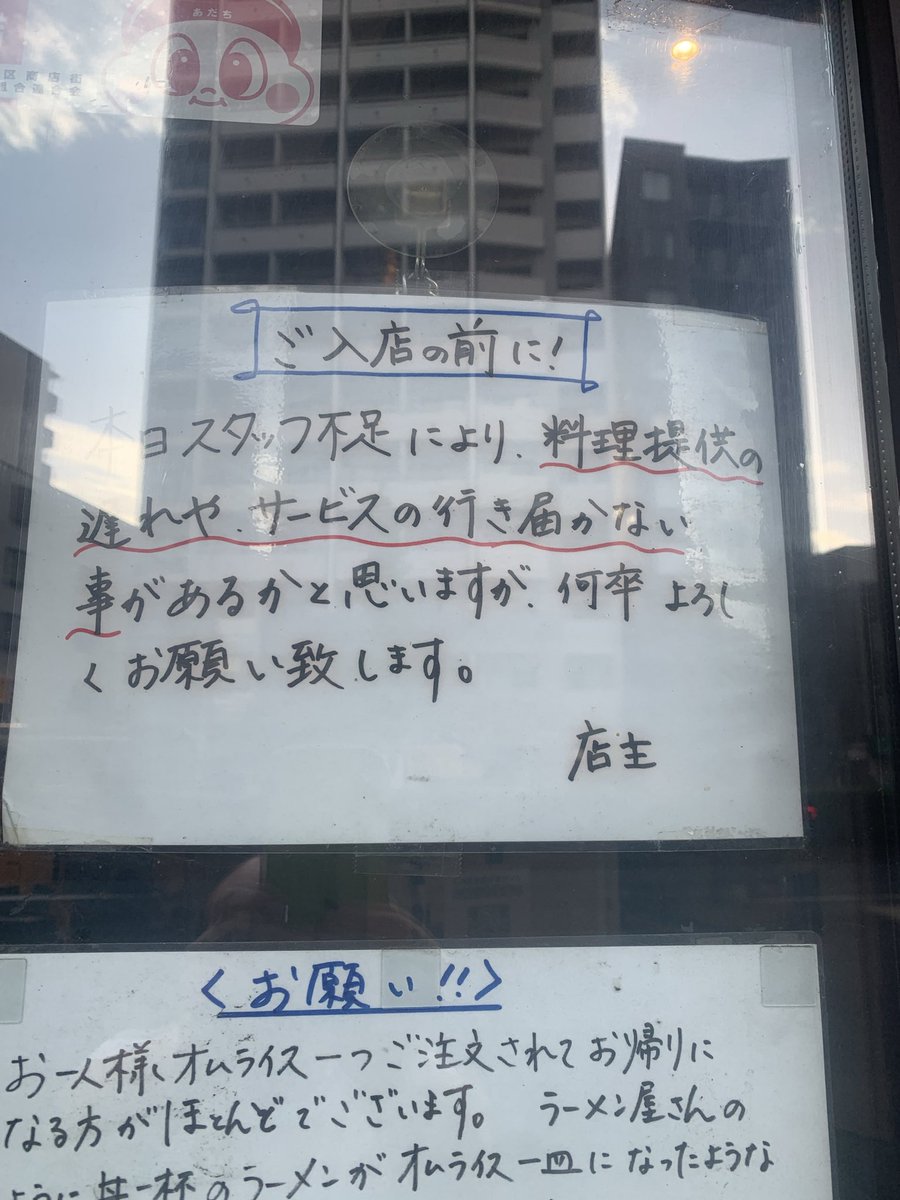 あだち
区商店街
組合連合会
ご入店の前に!
本日スタッフ不足により、料理提供の
遅れや、サービスの行き届かない
事があるかと思いますが、何卒よろし
くお願い致します。
店主
<お願い!!>
お一人様、オムライス一つご注文されてお帰りに
なる方がほとんどでございます。 ラーメン屋さんの
ように丼一杯のラーメンがオムライス一皿になったような